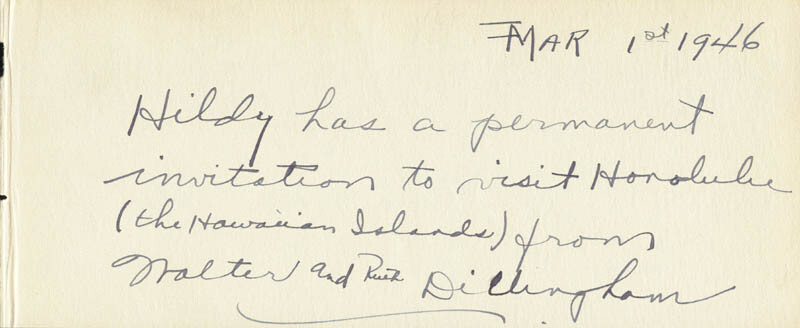 MAR 1st 1946
Hildy has a permanent
invitation to visit Honolulu
(the Hawaiian Islands) from
Walter and Ruth Dillingham